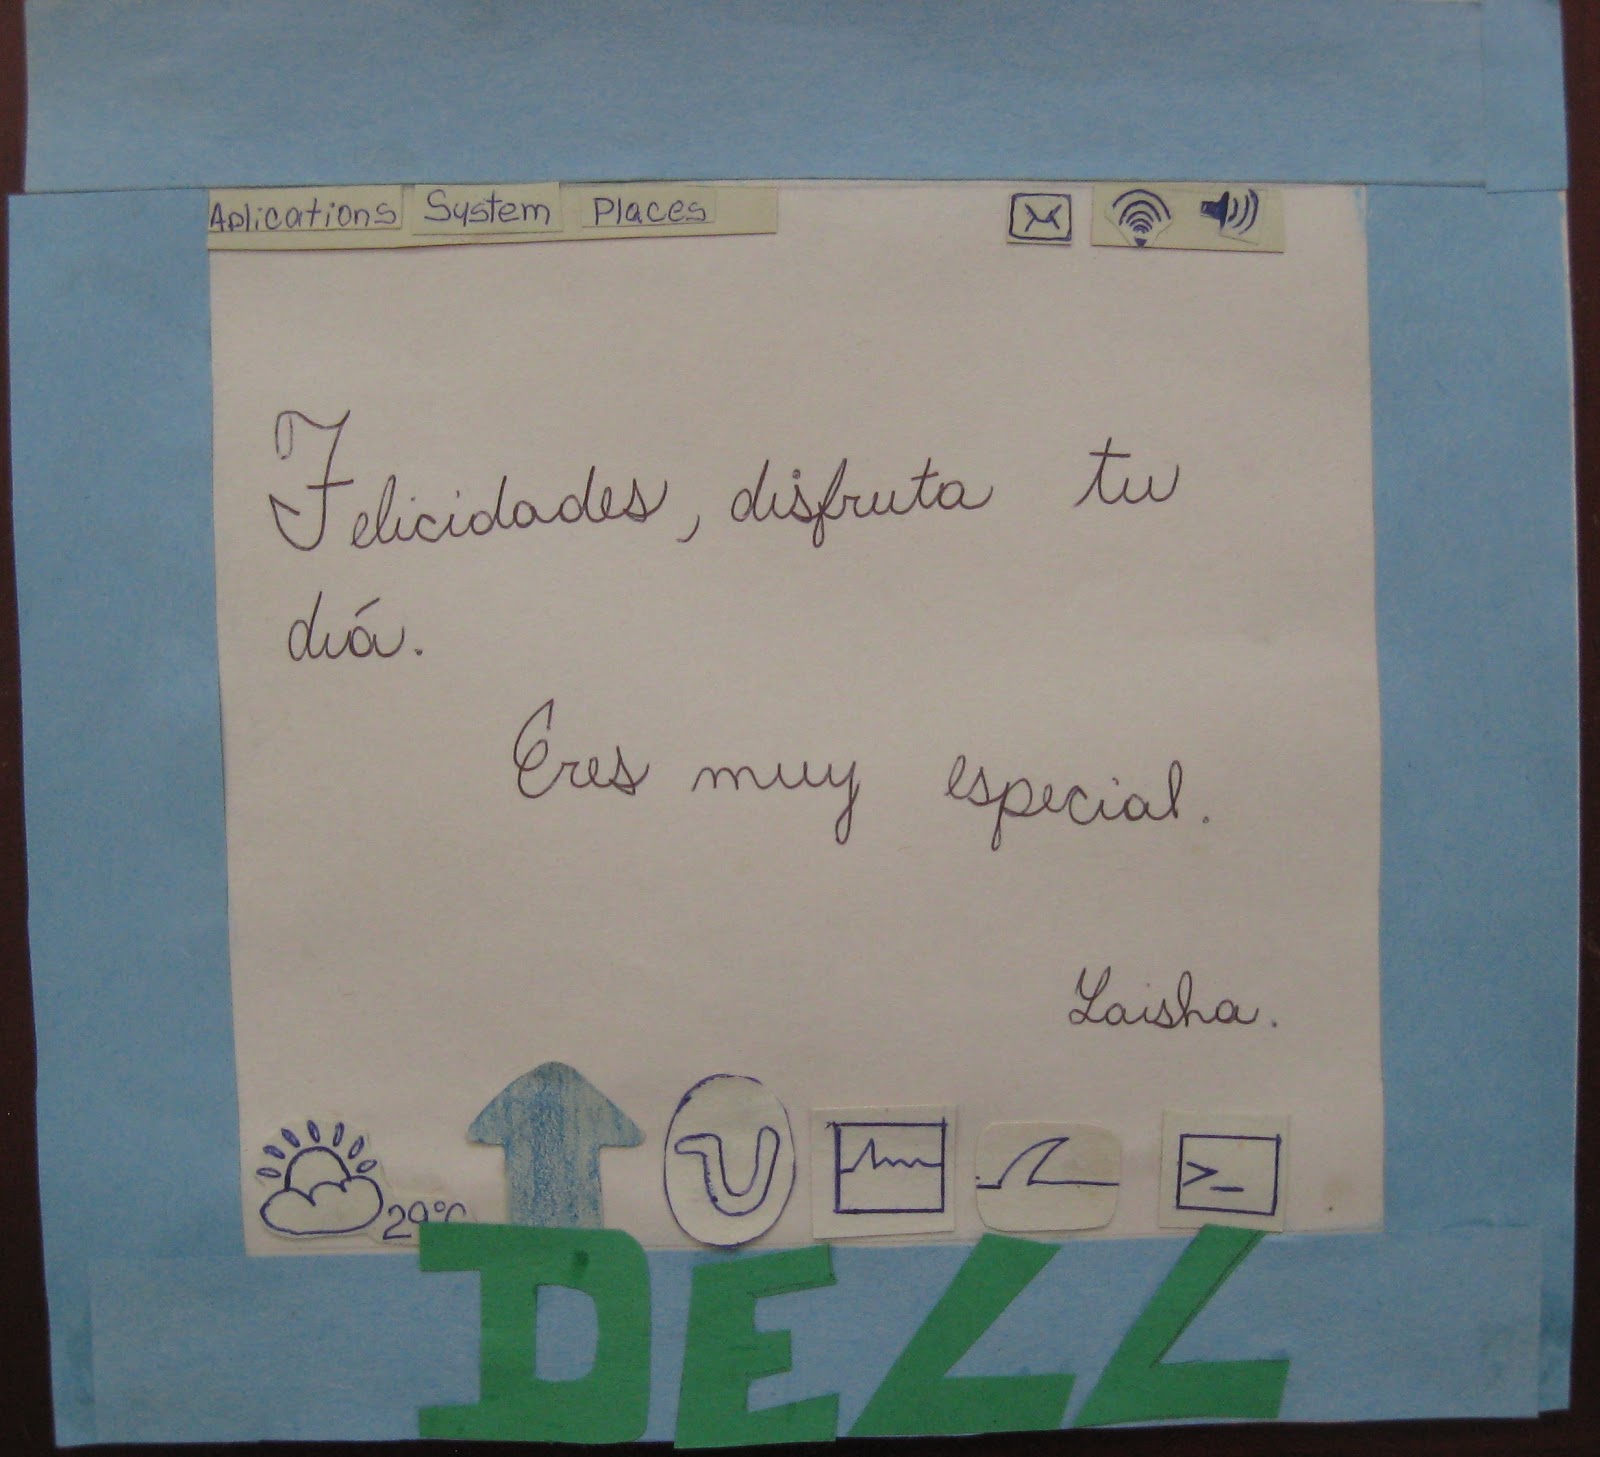 Aplications System Places
Felicidades, disfruta tu
diá.
Eres muy especial.
Laisha.
29°C
>_
DELL